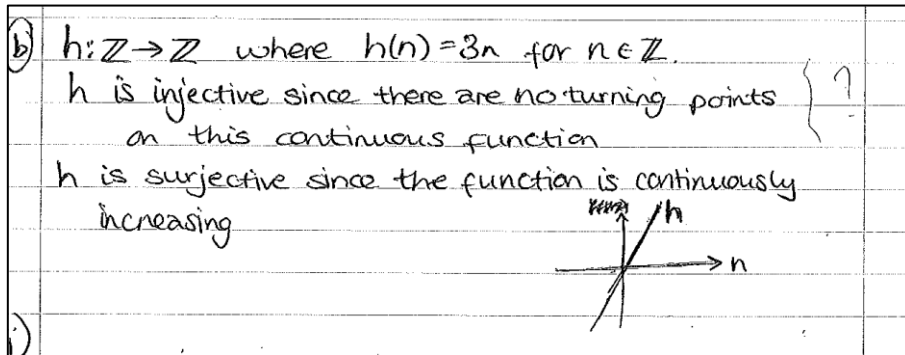 (b) h: ℤ→ℤ where h(n) = 3n for n ∈ ℤ.
h is injective since there are no turning points } ?
on this continuous function
h is surjective since the function is continuously
increasing
h
n